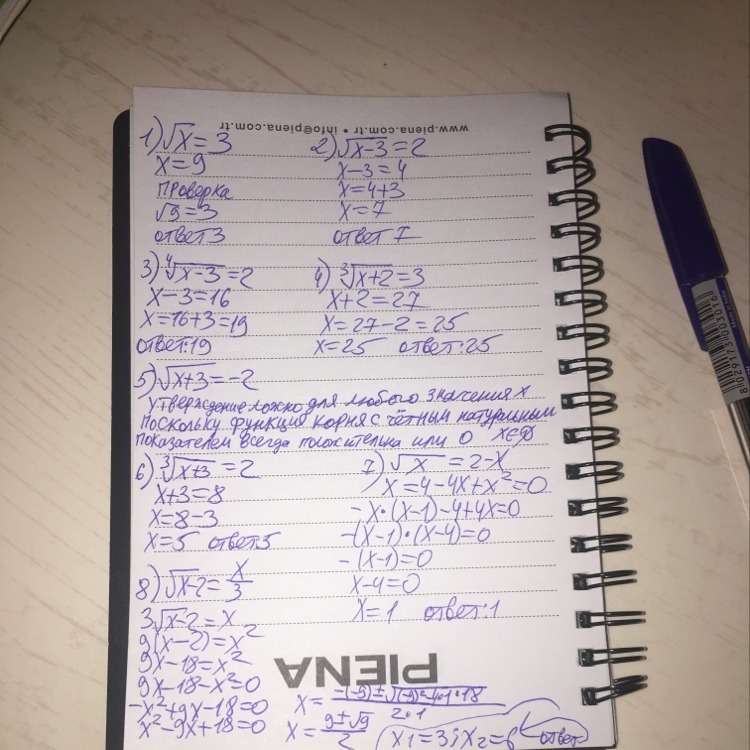 www.piena.com.tr • info@piena.com.tr
1) √x = 3
x = 9
проверка
√9 = 3
ответ 3
2) √x-3 = 2
x-3 = 4
x = 4+3
x = 7
ответ 7
3) ⁴√x-3 = 2
x-3 = 16
x = 16+3 = 19
ответ: 19
4) ³√x+2 = 3
x+2 = 27
x = 27-2 = 25
x = 25 ответ: 25
5) √x+3 = -2
утверждение ложно для любого значения x
поскольку функция корня с чётным натуральным
показателем всегда положительна или 0 x∈∅
6) ³√x+3 = 2
x+3 = 8
x = 8-3
x = 5 ответ 5
7) √x = 2-x
x = 4-4x+x² = 0
-x•(x-1)-4+4x=0
-(x-1)•(x-4)=0
-(x-1)=0
x-4=0
x = 1 ответ: 1
8) √x-2 = x/3
3√x-2 = x
9(x-2) = x²
9x-18 = x²
9x-18-x²=0
-x²+9x-18=0
x²-9x+18=0
x = -(-9)±√(-9)²-4•1•18 / 2•1
x = 9±√9 / 2
x1 = 3; x2 = 6 ответ
PIENA
8029173003016